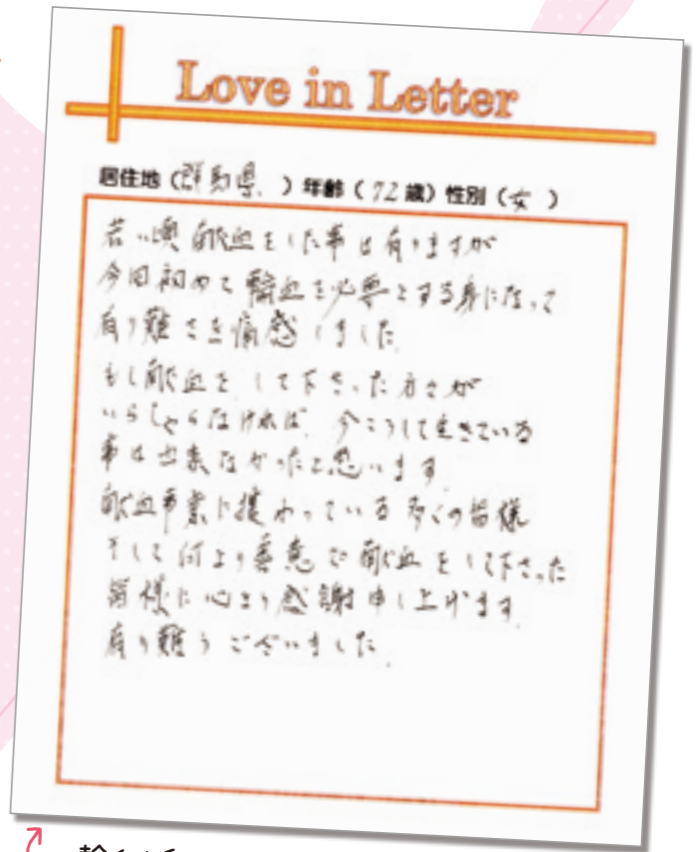 Love in Letter
居住地（群馬県）年齢（72歳）性別（女）
若い頃献血をした事は有りますが
今回初めて輸血を必要とする身になって
有り難さを痛感しました
もし献血をして下さった方々が
いらしゃらなければ、今こうして生きている
事は出来なかったと思います
献血事業に携わっている多くの皆様
そして何より善意で献血をして下さった
皆様に心より感謝申し上げます
有り難うございました